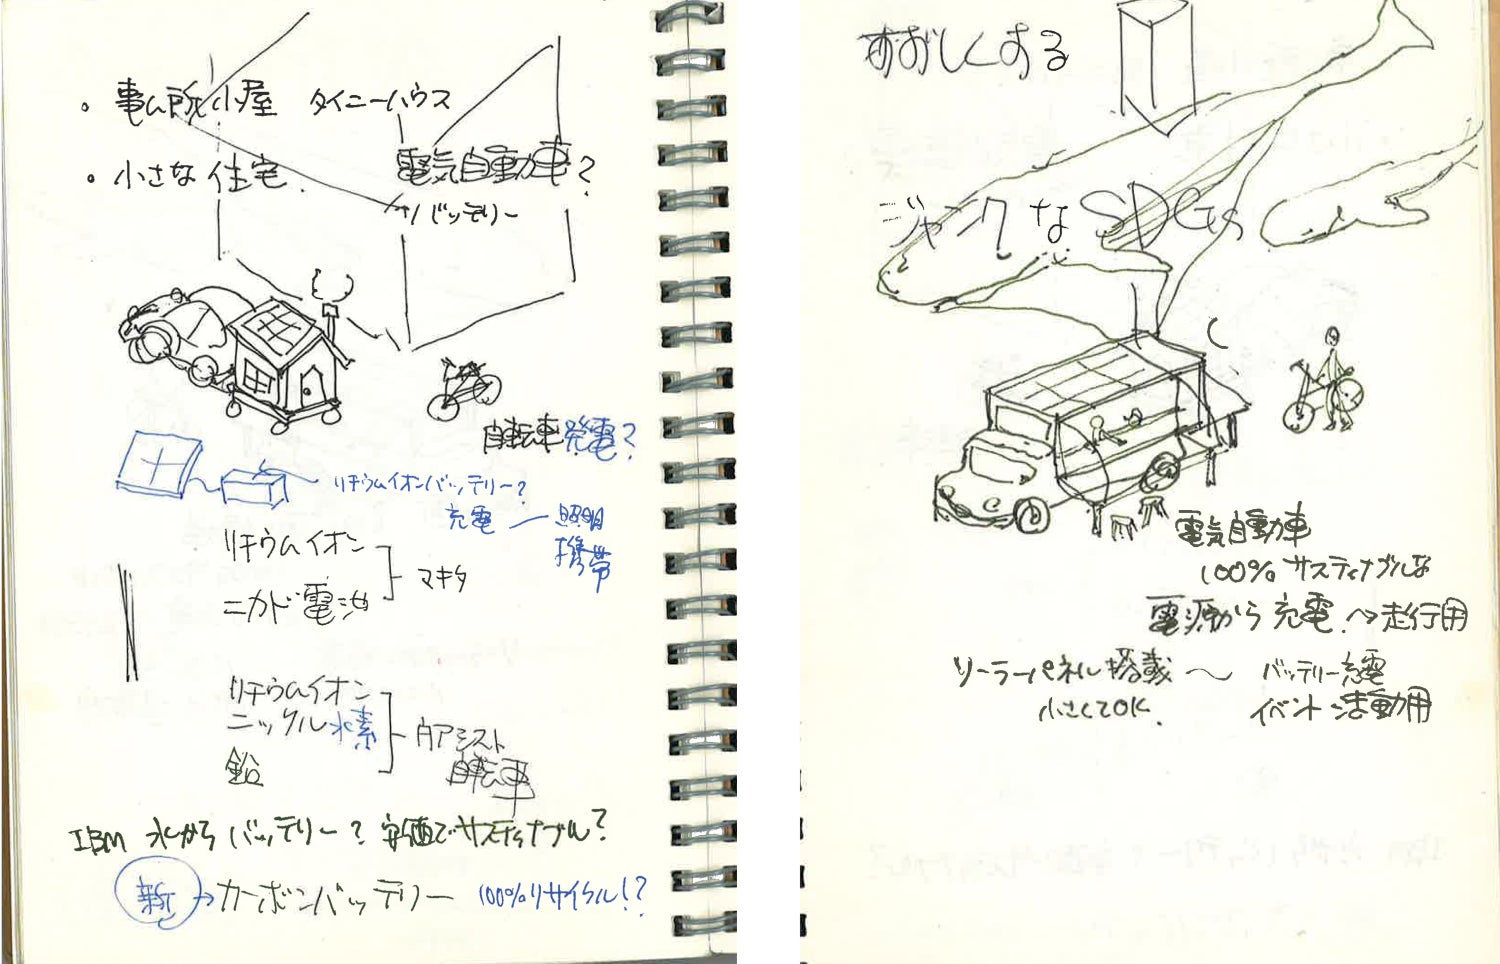 ・事ム所小屋 タイニーハウス
・小さな住宅. 電気自動車?
バッテリー
自転車発電?
リチウムイオンバッテリー?
充電 〜 照明
携帯
リチウムイオン
ニカド電池
マキタ
リチウムイオン
ニッケル水素
鉛
アシスト
自転車
IBM 水からバッテリー? 安価でサスティナブル?
新→カーボンバッテリー 100%リサイクル!?
すずしくする
ジャンクなSDGs
電気自動車
100%サスティナブルな
電源から充電.〜走行用
ソーラーパネル搭載 〜 バッテリー充電
小さくてOK. イベント活動用